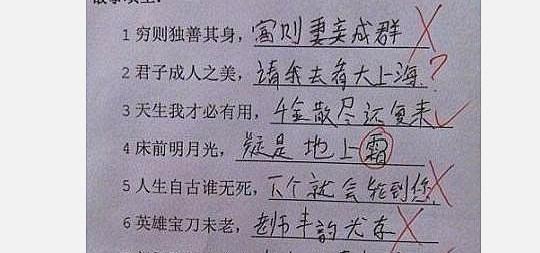 1 穷则独善其身，富则妻妾成群
2 君子成人之美，请我去看大上海.?
3 天生我才必有用，千金散尽还复来
4 床前明月光，疑是地上霜
5 人生自古谁无死，下个就会轮到您.
6 英雄宝刀未老，老师丰韵尤存